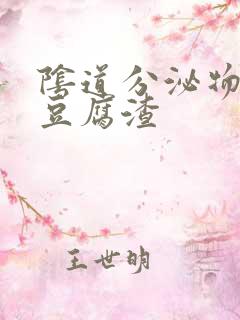 陰道分泌物
豆腐渣
王世明